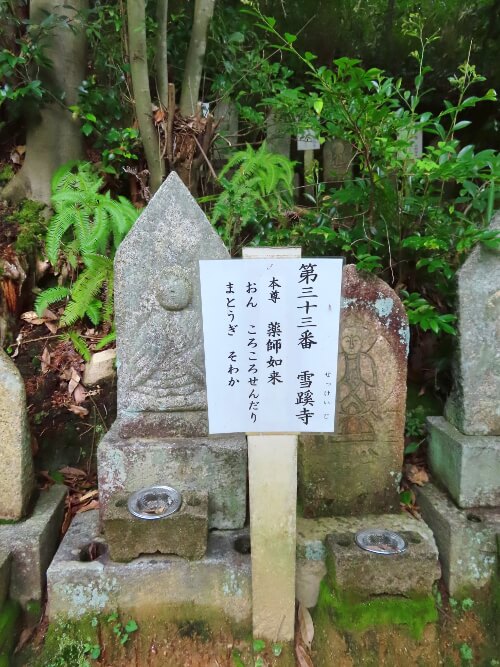 第三十三番 雪蹊寺
せっけいじ
本尊 薬師如来
おん ころころせんだり
まとうぎ そわか